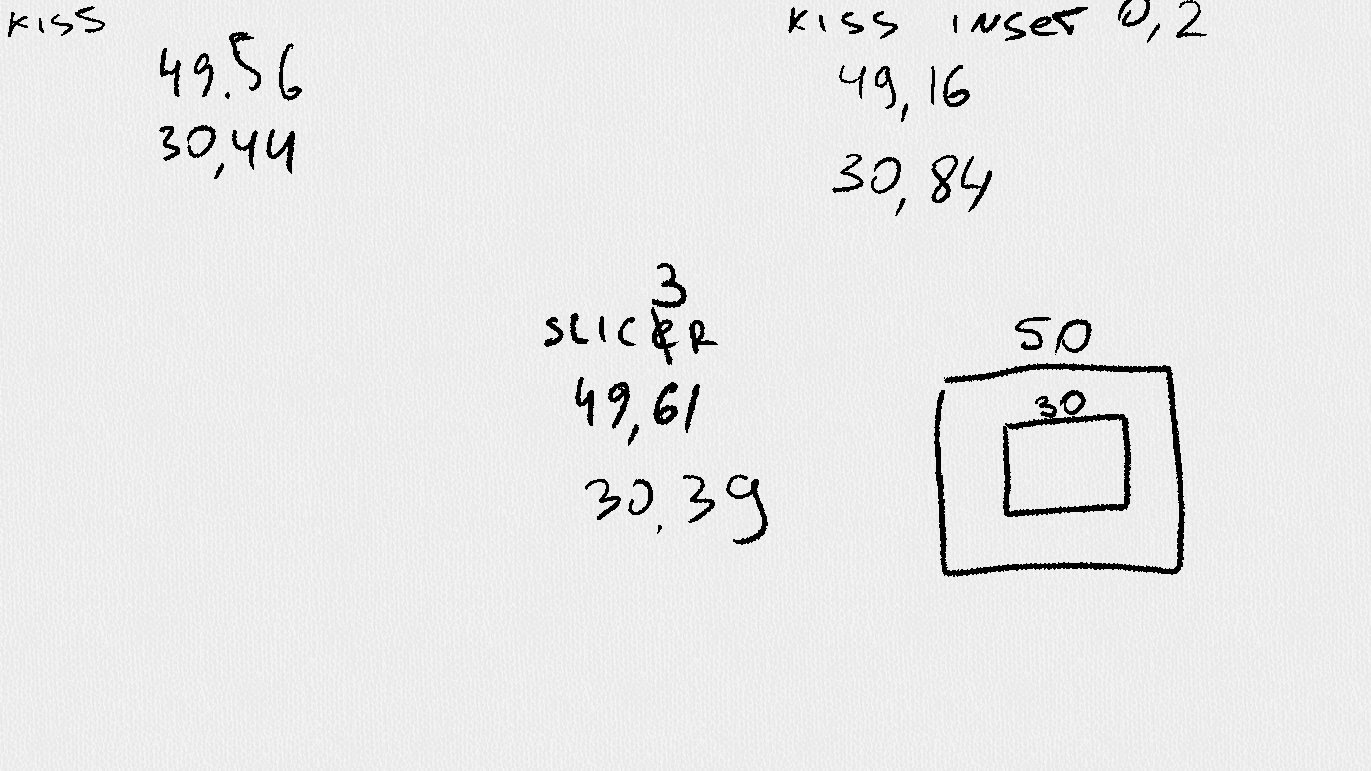 KISS
49.56
30,44
KISS INSET 0,2
49,16
30,84
3
SLICER
49,61
30.39
50
30